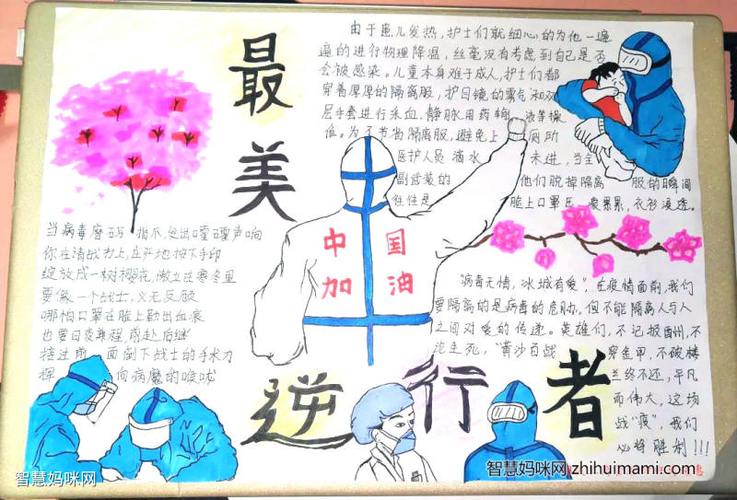 最美
逆行者
由于患儿发热，护士们就细心的为他一遍
遍的进行物理降温，丝毫没有考虑到自己是否
会被感染。儿童本身难于成人，护士们都
穿着厚厚的隔离服，护目镜的雾气和双
层手套进行采血，静脉用药等操
作。为了节省隔离服，避免上厕所
医护人员滴水未进，当全
副武装的他们脱掉隔离服的瞬间
往往是脸上口罩压痕累累，衣衫浸透。
中国
加油
当病毒
你在请战书上，庄严地按下手印
绽放成一树樱花，傲立在寒冬里
要做一个战士，义无反顾
哪怕口罩在脸上勒出血痕
也要日夜兼程，前赴后继
接过前面倒下战士的手术刀
挥向病魔的咽喉
"病毒无情，冰城有爱"，在疫情面前，我们
要隔离的是病毒的危胁，但不能隔离人与人
之间对爱的传递。英雄们，不记报酬，不
论生死，"黄沙百战穿金甲，不破楼
兰终不还，平凡
而伟大，这场
战"疫"，我们
必将胜利!!!
智慧妈咪网
智慧妈咪网zhihuimami.com